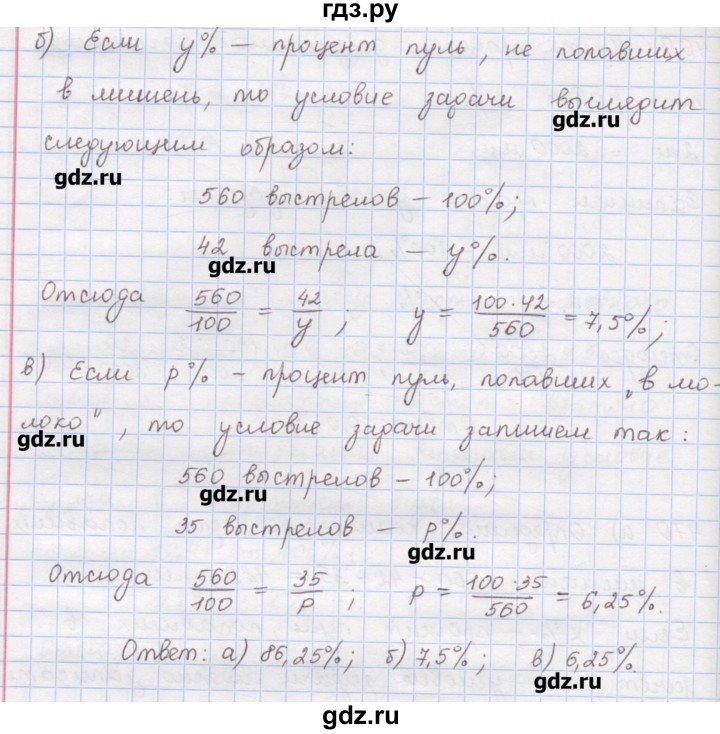 гдз.ру
б) Если y% – процент пуль, не попавших
в мишень, то условие задачи выглядит
gdz.ru
следующим образом:
gdz.ru
560 выстрелов – 100%;
42 выстрела – y%.
gdz.ru
Отсюда 560/100 = 42/y ; y = 100·42/560 = 7,5%;
в) Если p% – процент пуль, попавших „в мо-
локо", то условие задачи запишем так:
gdz.ru
560 выстрелов – 100%;
gdz.ru
35 выстрелов – p%.
gdz.ru
Отсюда 560/100 = 35/p ; p = 100·35/560 = 6,25%.
Ответ: а) 86,25%; б) 7,5%; в) 6,25%.
gdz.ru
gdz.ru